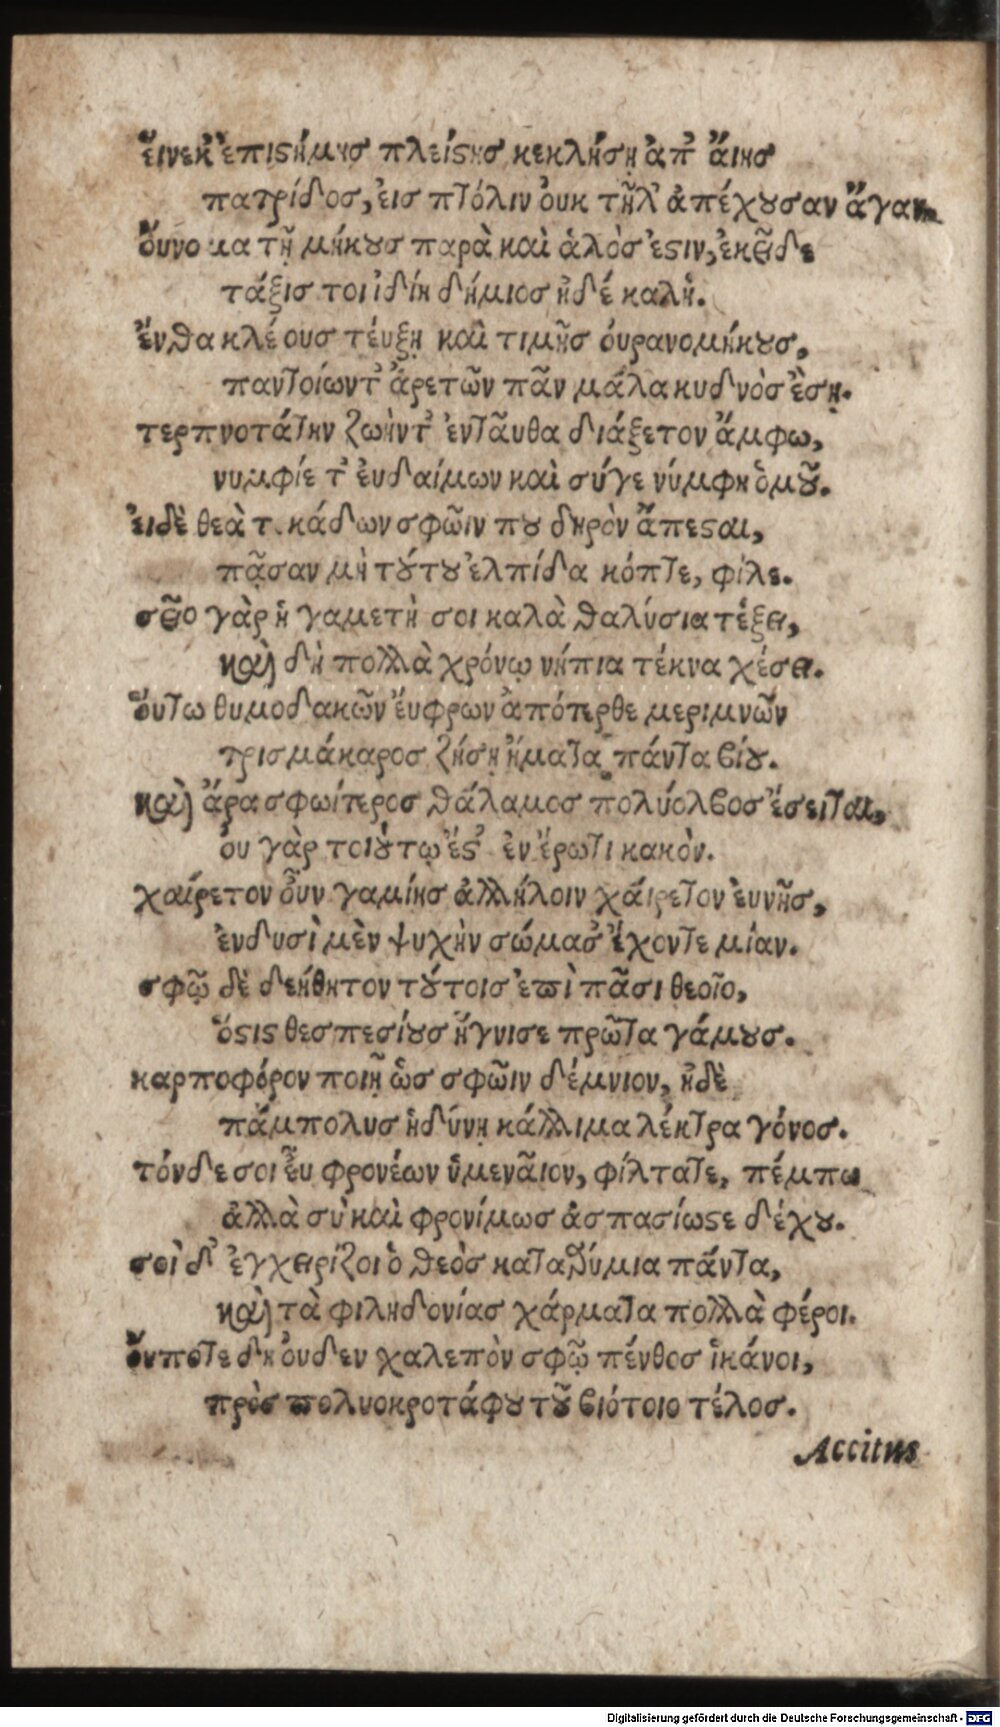 ἕινεκ̓ ἐπιϛήμησ πλείϛησ κεκλήσῃ ἀπ̓ ἄιησ
πατρίδοσ, ἐισ πτόλιν ὀυκ τῆλ̓ ἀπέχουσαν ἄγαν.
ὄυνομα τῇ μήκουσ παρὰ καὶ ἁλὸσ ἐϛιν, ἐκεῖδε
τάξισ τοι ἰδίη δήμιοσ ἠδέ καλή.
ἔνθα κλέουσ τέυξῃ καὶ τιμῆσ ὀυρανομήκουσ,
παντοίωντ̓ ἀρετῶν πᾶν μάλα κυδνὸσ ἔσῃ.
τερπνοτάτην ζωήντ̓ ἐνταῦθα διάξετον ἄμφω,
νυμφίε τ̓ ἐυδαίμων καὶ σύγε νύμφη ὁμοῦ.
ἐιδὲ θεὰ τ. κάδων σφῶιν που δηρὸν ἄπεϛαι,
πᾶσαν μὴ τούτου ἐλπίδα κόπτε, φίλε.
σεῖο γὰρ ἡ γαμετὴ σοι καλὰ θαλύσια τέξει,
καὶ δὴ πολλὰ χρόνῳ νήπια τέκνα χέσει.
ὅυτω θυμοδακῶν ἔυφρων ἀπότερθε μεριμνῶν
τρισμάκαροσ ζήσῃ ἤματα πάντα βίου.
καὶ ἄρα σφωίτεροσ θάλαμοσ πολύολβοσ ἔσειται,
ὀυ γὰρ τοιούτῳ ἔϛ̓ ἐν ἔρωτι κακὸν.
χαίρετον ὖουν γαμίησ ἀλλήλοιν χάιρετον ἐυνῆσ,
ἐν δυσὶ μὲν ψυχὴν σώμασ̓ ἔχοντε μίαν.
σφῷ δὲ δεήθητον τούτοισ ἐπὶ πᾶσι θεοῖο,
ὅϛισ θεσπεσίουσ ἥγνισε πρῶτα γάμουσ.
καρποφόρον ποιῇ ὡσ σφῶιν δέμνιον, ἠδὲ
πάμπολυσ ἡδύνῃ κάλλιμα λέκτρα γόνοσ.
τόνδε σοι ἐῦ φρονέων ὑμενᾶιον, φίλτατε, πέμπω
ἀλλὰ σὺ καὶ φρονίμωσ ἀσπασίωϛε δέχου.
σοὶ δ̓ ἐγχειρίζοι ὁ θεὸσ καταθύμια πάντα,
καὶ τὰ φιληδονίασ χάρματα πολλὰ φέροι.
ὄυποτε δη ὀυδεν χαλεπὸν σφῷ πένθοσ ἱκάνοι,
πρὸσ πολυοκροτάφου τοῦ βιότοιο τέλοσ.
Accitus
Digitalisierung gefördert durch die Deutsche Forschungsgemeinschaft - DFG